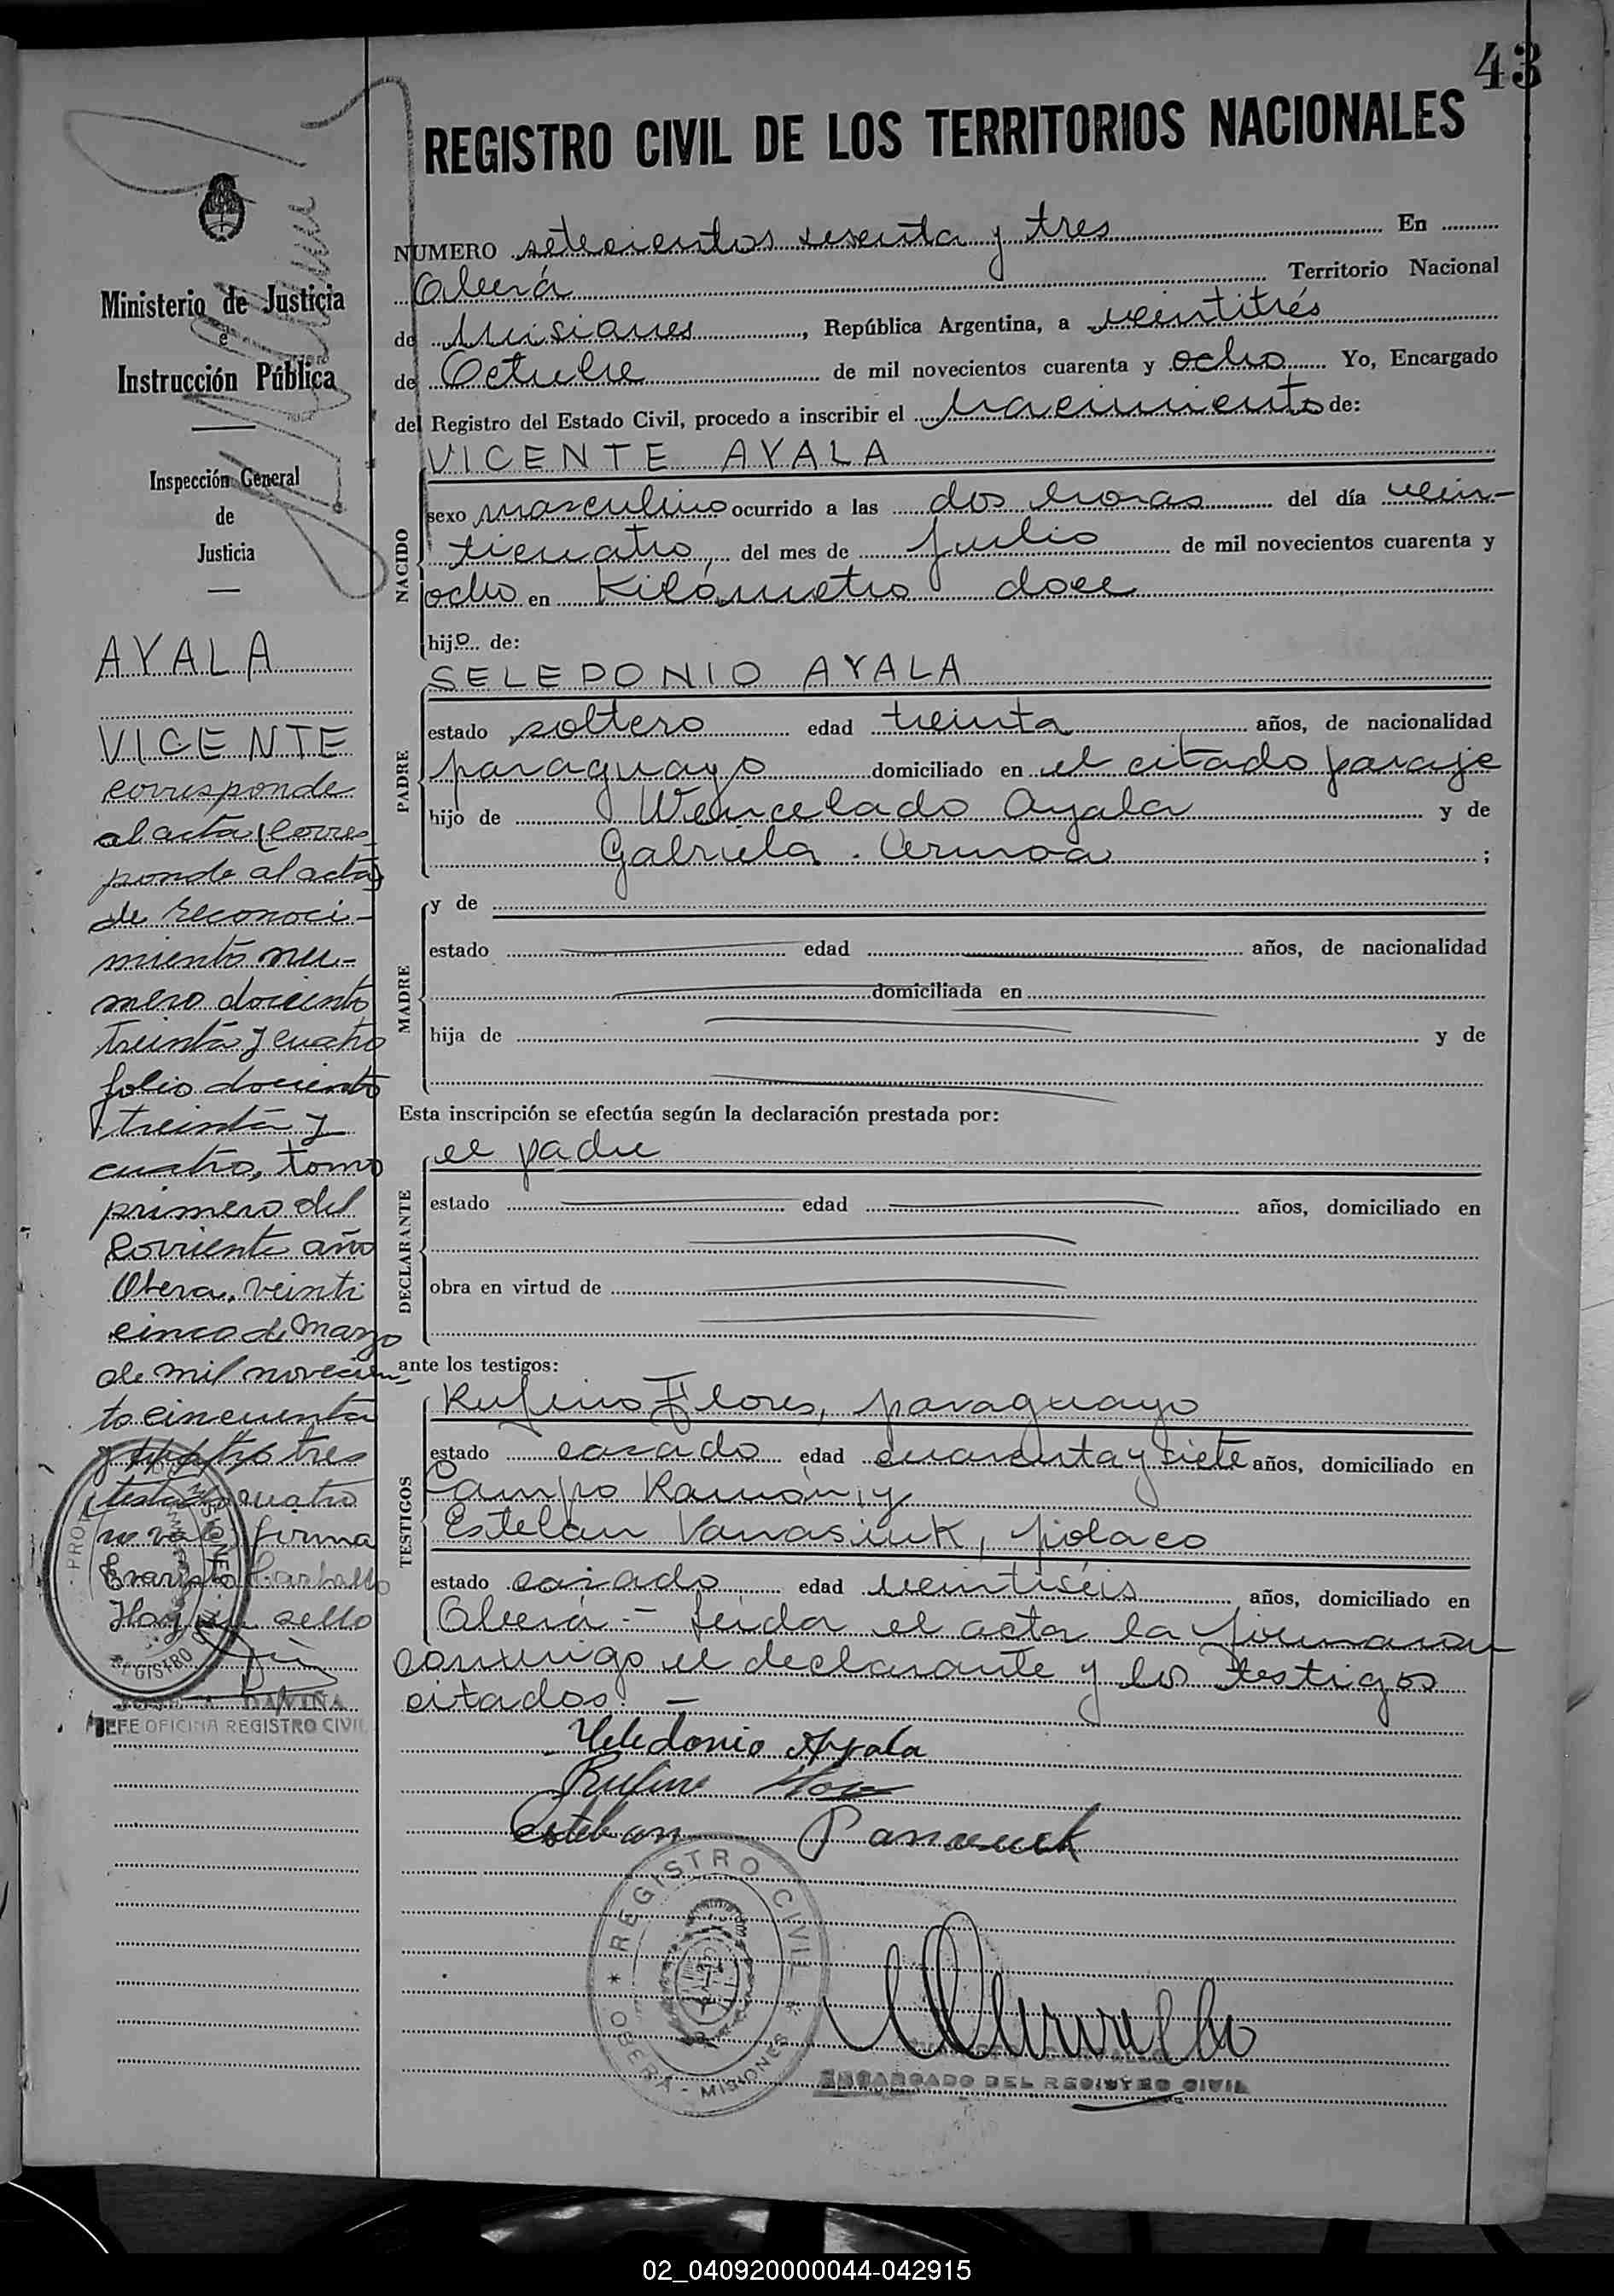 43
REGISTRO CIVIL DE LOS TERRITORIOS NACIONALES
NUMERO setecientos sesenta y tres En
Oberá Territorio Nacional
de Misiones, República Argentina, a veintitrés
de Octubre de mil novecientos cuarenta y ocho Yo, Encargado
del Registro del Estado Civil, procedo a inscribir el nacimiento de:
VICENTE AYALA
NACIDO
sexo masculino ocurrido a las dos horas del día vein-
ticuatro, del mes de julio de mil novecientos cuarenta y
ocho en Kilómetro doce
hijo de:
SELEDONIO AYALA
PADRE
estado soltero edad treinta años, de nacionalidad
paraguayo domiciliado en el citado paraje
hijo de Wencelado Ayala y de
Gabriela Armoa ;
MADRE
y de
estado edad años, de nacionalidad
domiciliada en
hija de y de
Esta inscripción se efectúa según la declaración prestada por:
DECLARANTE
el padre
estado edad años, domiciliado en
obra en virtud de
ante los testigos:
TESTIGOS
Rufino Flores, paraguayo
estado casado edad cuarenta y siete años, domiciliado en
Campo Ramón, y
Esteban Vanasiuk, polaco
estado casado edad veintiséis años, domiciliado en
Oberá - Leida el acta la firmaron
conmigo el declarante y los testigos
citados. -
Seledonio Ayala
Rufino
Esteban
REGISTRO CIVIL
OBERA - MISIONES
ENCARGADO DEL REGISTRO CIVIL
Ministerio de Justicia
e
Instrucción Pública
Inspección General
de
Justicia
AYALA
VICENTE
corresponde
al acta (corres
ponde al acta)
de reconoci-
miento nu-
mero dociento
treinta y cuatro
folio dociento
treinta y
cuatro, tomo
primero del
corriente año
Obera, veinti
cinco de Marzo
de mil novecien-
to cincuenta
y cuatro tres
testado cuatro
no vale firma
Evaristo Carballo
Hay un sello
REGISTRO
DAVIÑA
JEFE OFICINA REGISTRO CIVIL
02_040920000044-042915